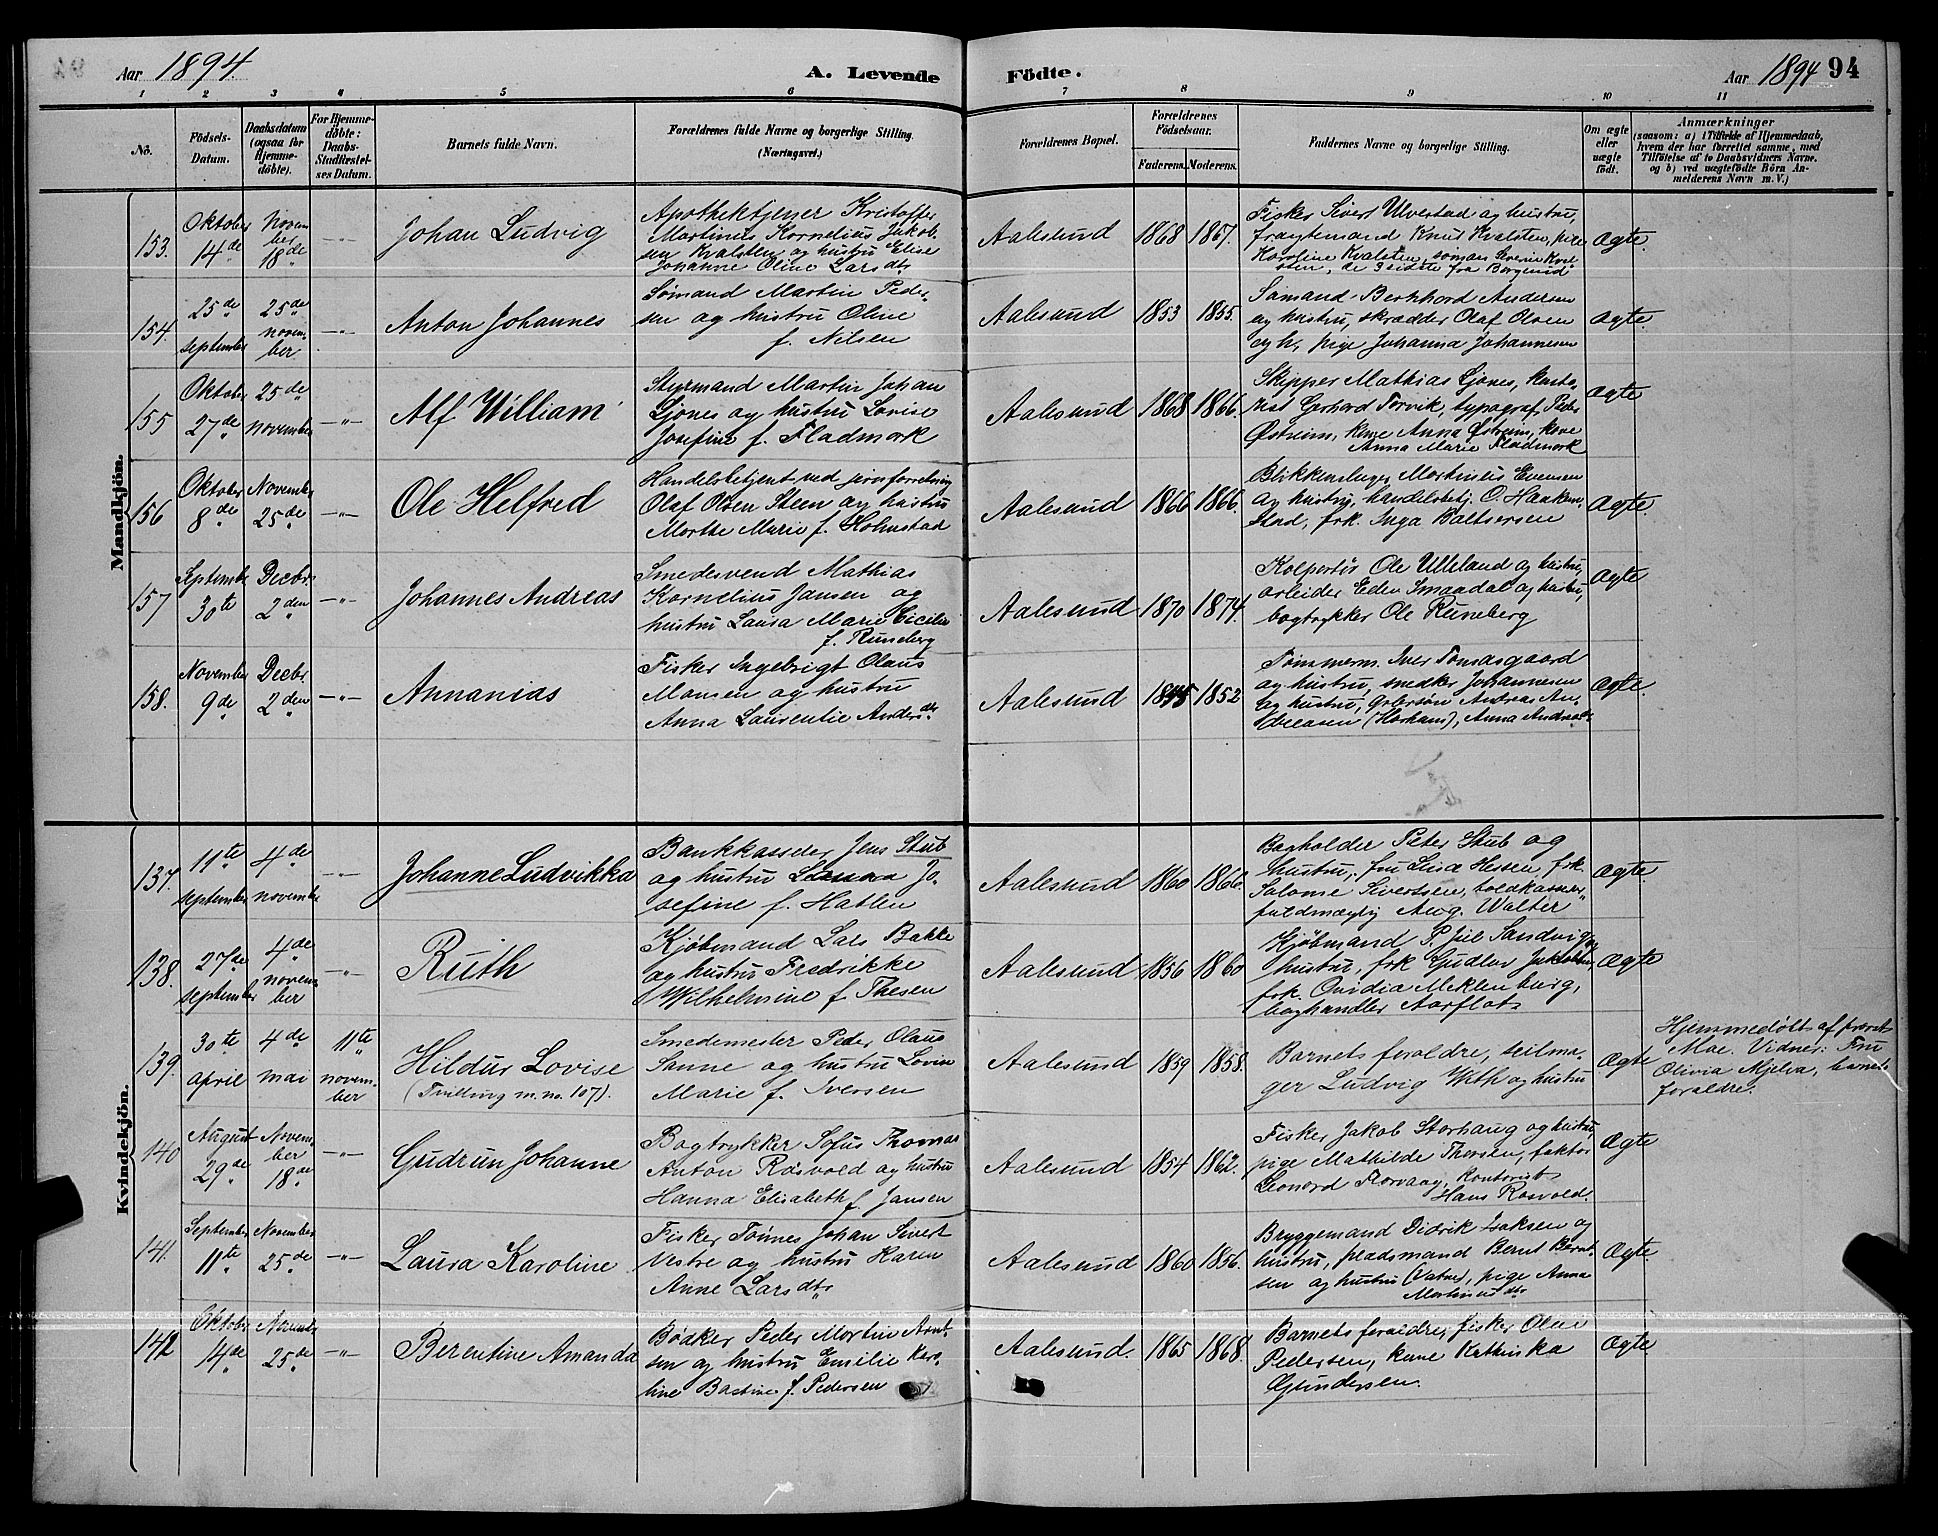 Aar 1894
A. Levende
Födte.
Aar 1894 94
1 2 3 4 5 6 7 8 9 10 11
No.
Födsels-
Datum.
Daabsdatum
(ogsaa for
Hjemme-
döbte).
For Hjemme-
döbte:
Daabs-
Stadfæstel-
ses Datum.
Barnets fulde Navn.
Forældrenes fulde Navne og borgerlige Stilling.
(Næringsvei.)
Forældrenes Bopæl.
Forældrenes
Födselsaar.
Faderens. Moderens.
Faddernes Navne og borgerlige Stilling.
Om ægte
eller
uægte
födt.
Anmærkninger
(saasom: a) i Tilfælde af Hjemmedaab,
hvem der har forrettet samme, med
Tilföielse af to Daabsvidners Navne.
og b) ved uægtefödte Börn An-
melderens Navn m. V.)
Mandkjön.
153.
Oktober
14de
Novem
ber
18de
-"-
Johan Ludvig
Apothektjener Kristoffer
Martinus Kornelius Jakob-
sen Kvalsten og hustru Elise
Johanne Oline Larsdtr
Aalesund
1868
1867.
Fisker Sivert Ulvestad og hustru,
fragtemand Knut Kvalsten, pige
Karoline Kvalsten, sømand Severin Kval-
sten, de 3 sidste fra Borgund
Ægte.
154.
25de
september
25de
novem-
ber
-"-
Anton Johannes
Sømand Martin Peder-
sen og hustru Oline
f. Nilsen
Aalesund
1853
1855.
Sømand Bernhard Andersen
og hustru, skrædder Olaf Olsen
og h., pige Johanna Johannesen
Ægte.
155
Oktober
27de
25de
november
-"-
Alf William
Styrmand Martin Johan
Gjønes og hustru Lovise
Josefine f. Fladmork
Aalesund
1868
1866.
Skipper Mathias Gjønes,
Gerhard Torvik, typograf Peder
Østreim, kone Anna Østreim, kone
Anna Marie Fladmork
Ægte
156
Oktober
8de
November
25de
-"-
Ole Helfred
Handelsbetjent ved jernforretning
Olaf Olsen Steen og hustru
Marthe Marie f. Holmstad
Aalesund
1866
1866.
Blikkenslager Martinus Evensen
og hustru, handelsbetj. O. Haaken-
stad, frk. Inga Baltsersen
Ægte.
157
Septembr
30te
Decbr.
2den
-"-
Johannes Andreas
Smedesvend Mathias
Kornelius Jansen og
hustru Laura Marie Cicilie
f. Runeberg
Aalesund
1870
1874.
Kolportør Ole Ulleland og hustru,
arbeider Eden Smaadal og hustru,
bogtrykker Ole Runeberg
Ægte
158.
November
9de
Decbr.
2den
-"-
Annanias
Fisker Ingebrigt Olaus
Monsen og hustru
Anna Laurentie Andersdtr
Aalesund
1845
1852
Tømmerm. Iver Tomasgaard
og hustru, snedker Johannesen
og hustru, Andreas An-
dreasen (Harham), Anna Andreasdtr
Ægte.
Kvindekjön.
137.
11te
september
4de
november
-"-
Johanne Ludvikka
Bankkasserer Jens Stub
og hustru Launa Jo-
sefine f. Hatlen
Aalesund
1860
1866.
Bogholder Peter Stub og
hustru, fru Lina Hessen, frk.
Salome Sivertsen, toldkasser-
fuldmægtig Aug. Walter
Ægte.
138.
27de
september
4de
novem-
ber
-"-
Ruth
Kjøbmand Lars Bakke
og hustru Fredrikke
Wilhelmine f. Thesen
Aalesund
1856
1860
Kjøbmand P. Juel Sandvig og
hustru, frk Gudlav Jakobsen,
frk. Ovidia Meklenburg,
boghandler Aarflot
Ægte
139.
30te
april
4de
mai
11te
novem-
ber
Hildur Lovise
(Tvilling m. no. 107).
Smedemester Peder Olaus
Sanne og hustru Lovise
Marie f. Iversen
Aalesund
1859
1858.
Barnets forældre, seilma-
ger Ludvig With og hustru
Ægte
Hjemmedøbt af provst
Moe. Vidner: Fru
Olivia Mjelva, barnets
forældre.
140
August
29de
Novem-
ber
18de
-"-
Gudrun Johanne
Bogtrykker Sofus Thomas
Anton Rosvold og hustru
Hanna Elisabeth f. Jansen
Aalesund
1854
1862.
Fisker Jakob Storhaug og hustru,
pige Mathilde Thorsen, faktor
Leonard Torvaag, kontorist
Hans Rosvold.
Ægte
141.
September
11te
November
25de
-"-
Laura Karoline
Fisker Tønnes Johan Sivert
Vestre og hustru Karen
Anne Larsdtr
Aalesund
1860
1856.
Bryggemand Didrik Isaksen og
hustru, pladsmand Bernt Bernt-
sen og hustru (Vatne), pige Anna
Martinusdtr
Ægte.
142
Oktober
14de
November
25de
-"-
Berentine Amanda
Bødker Peder Martin Arnt-
sen og hustru Emilie Karo-
line Bastine f. Pedersen
Aalesund.
1865
1868.
Barnets forældre, fisker Oluf
Pedersen, kone Kathinka
Gundersen.
Ægte.